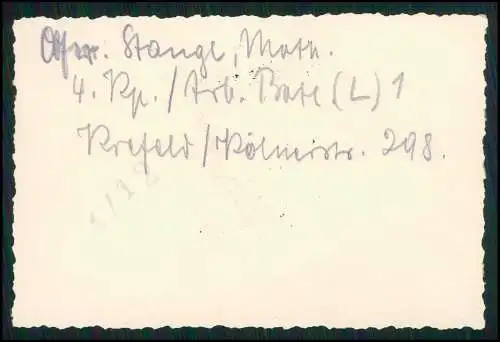 Ofw. Stangl, Math.
4. Kp./Arb. Batl (L) 1
Krefeld/Kölnerstr. 298.